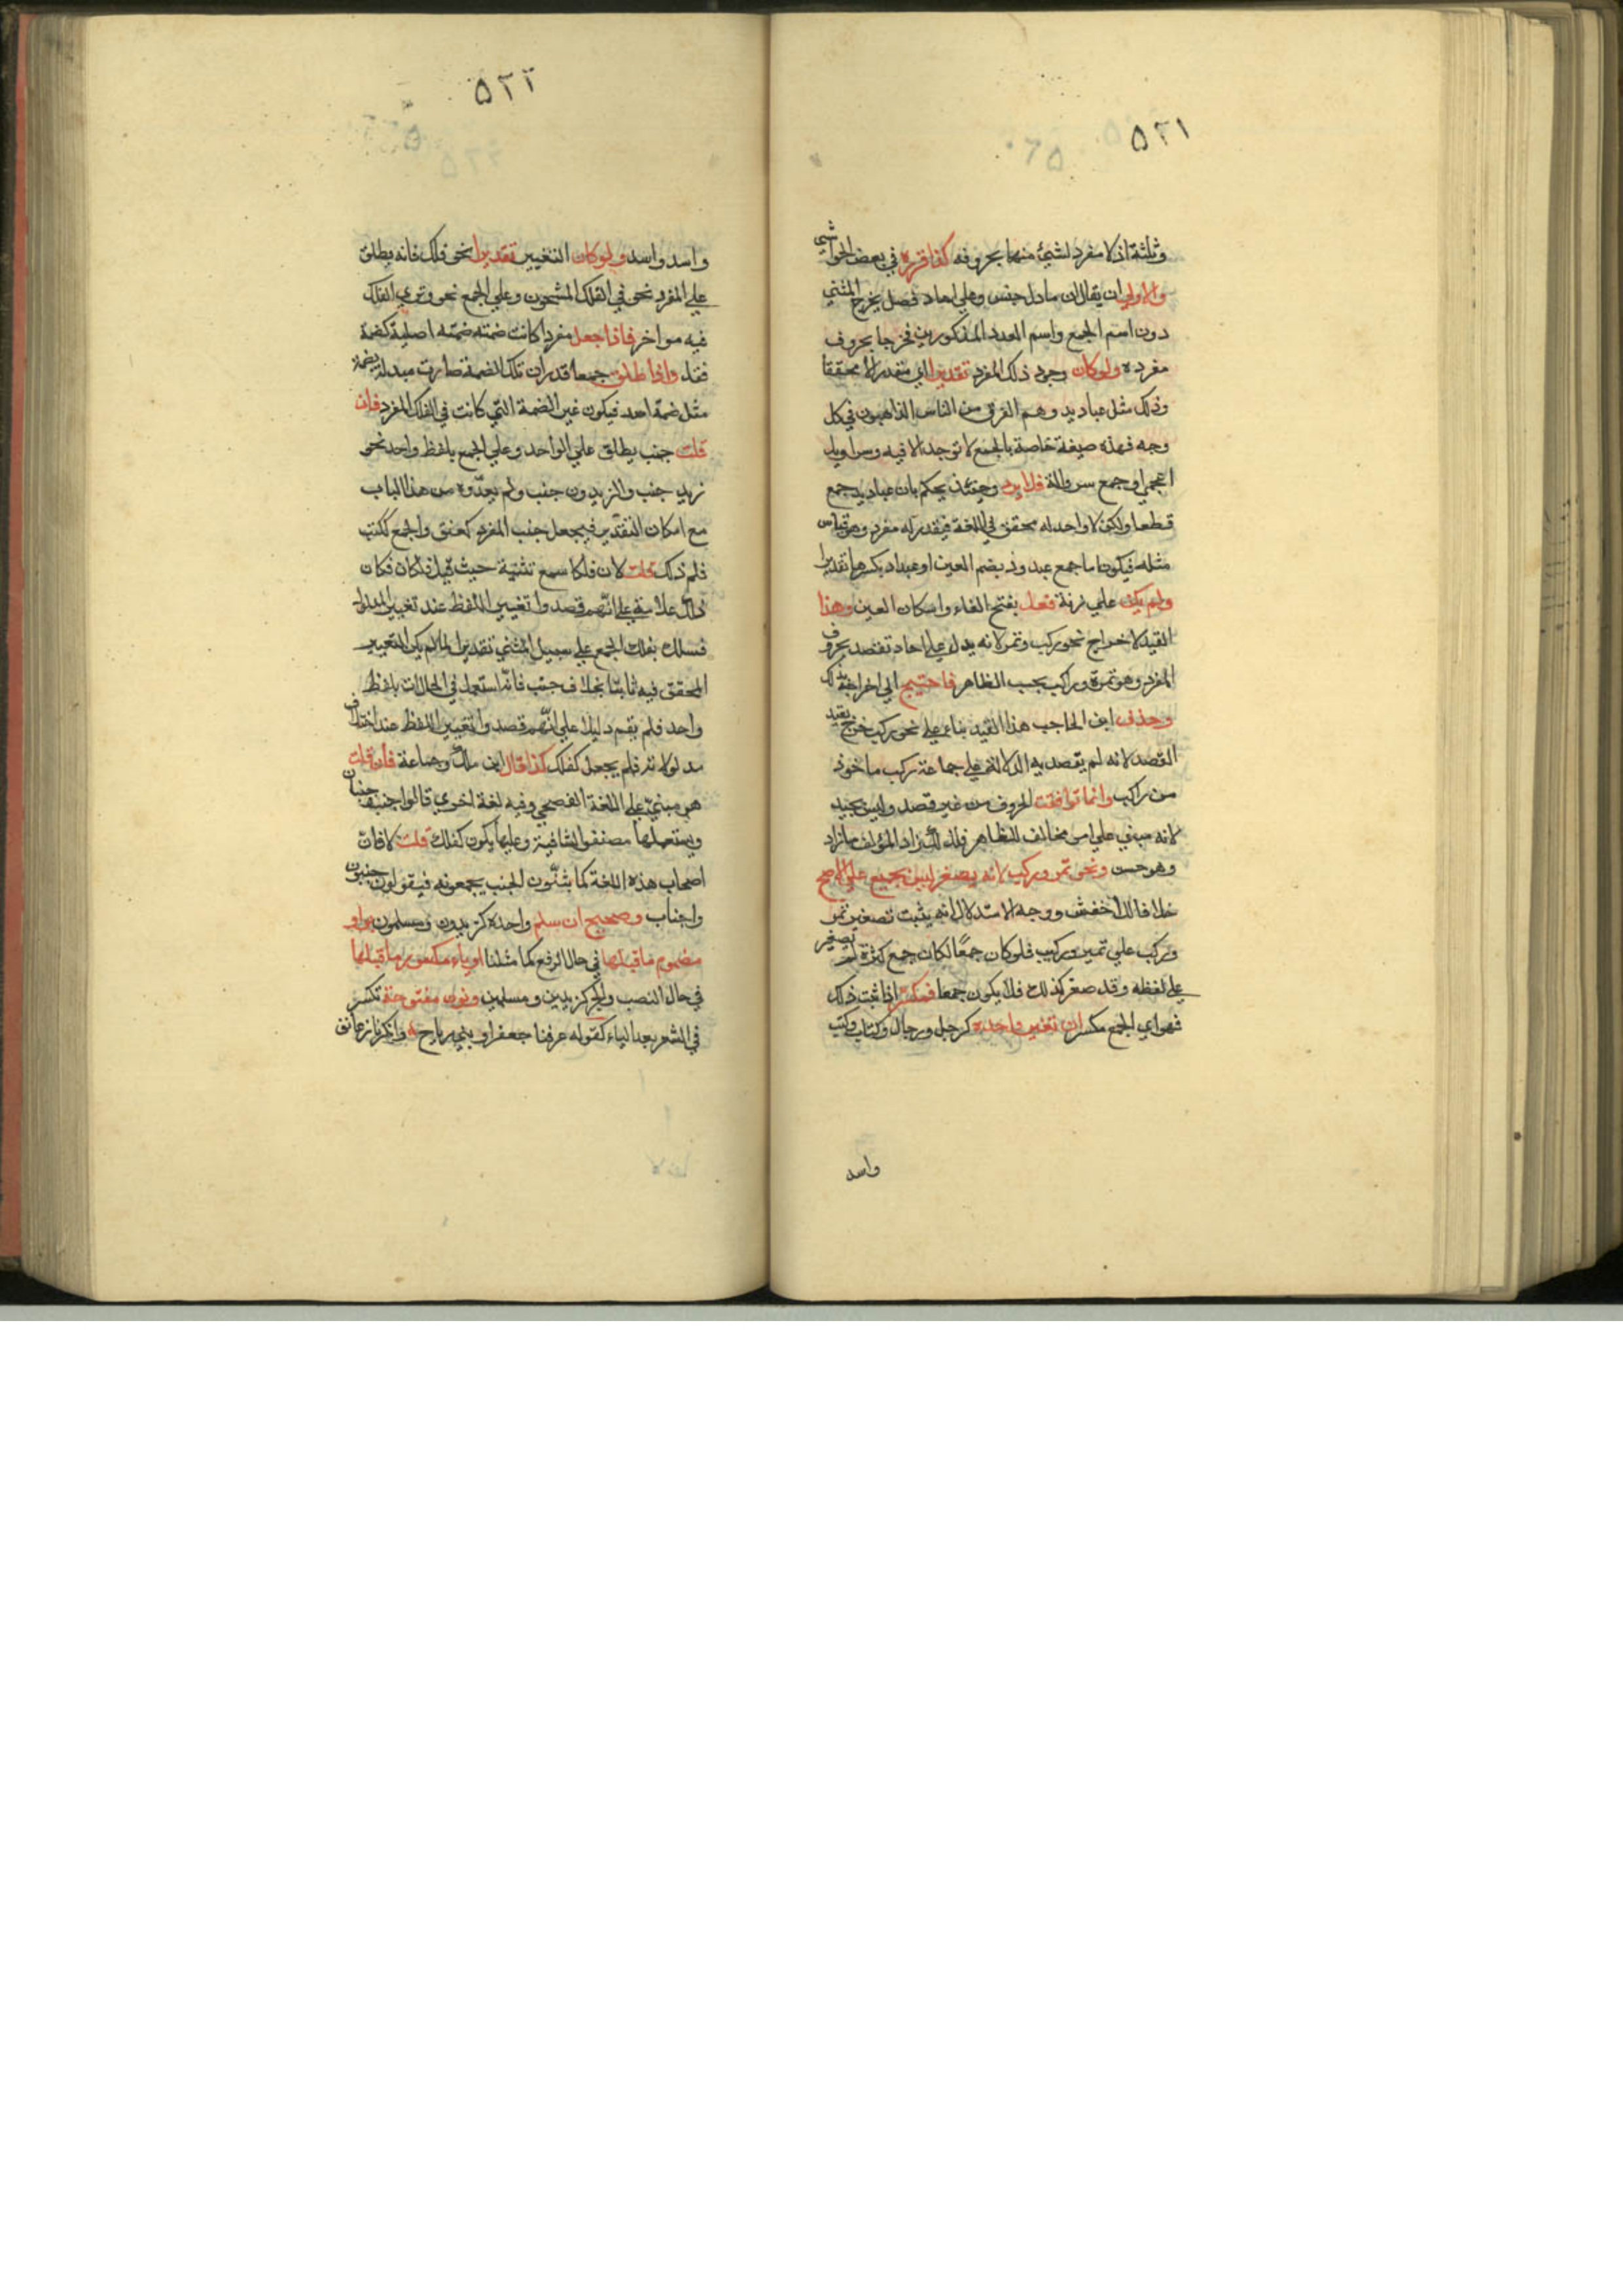 ٥٢١
وثلثة اذ لا مفرد لشئ منها بحروفه كذا قرره في بعض الحواشي
والاولى ان يقال ان ما دل جنس وعلى احاد فصل يخرج المثني
دون اسم الجمع واسم العدد المذكورين فخرجا بحروف
مفرده ولو كان وجود ذلك المفرد تقديرا اي مقدرا لا محققا
وذلك مثل عباديد وهم الفرق من الناس الذاهبون في كل
وجه فهذه صيغة خاصة بالجمع لا توجد الا فيه وسراويل
اعجمي او جمع سروالة فلا يرد وحينئذ يحكم بان عباديد جمع
قطعا ولكن لا واحد له محقق في اللغة فيقدر له مفرد وهو قياس
مثله فيكون اما جمع عبدود بضم العين او عبداد بكسرها تقديرا
ولم يكن على زنة فعل بفتح الفاء واسكان العين وهذا
القيد لاخراج نحو ركب وتمر لانه يدل على احاد تقصد بحروف
المفرد وهو تمرة وراكب بحسب الظاهر فاحتيج الي اخراجه لذلك
وحذف ابن الحاجب هذا القيد بناء على نحو ركب خرج بقيد
القصد لانه لم يقصد به الدلالة على جماعة ركب ماخوذ
من راكب وانما توافقت الحروف من غير قصد وليس بجيد
لانه مبني على امر مخالف للظاهر فلذلك زاد المؤلف ما زاد
وهو حسن ونحو تمر وركب لانه يصغر ليس بجمع على الاصح
خلافا للاخفش ووجه الاستدلال انه يثبت تصغير تمر
وركب على تمير وركيب فلو كان جمعًا لكان جمع كثرة لم يصغر
على لفظه وقد صغر كذلك فلا يكون جمعا فمكسر اذا ثبت ذلك
فهو اي الجمع مكسر ان تغير واحده كرجل ورجال وكتاب وكتب
واسد
٥٢٢
واسد واسد ولو كان التغيير تقديرا نحو فلك فانه يطلق
على المفرد نحو في الفلك المشحون وعلي الجمع نحو وتري الفلك
فيه مواخر فاذا جعل مفردا كانت ضمته ضمته اصلية كضمة
قفل واذا اطلق جمعا قدر ان تلك الضمة صارت مبدلة بضمة
مثل ضمة اسد فيكون غير الضمة التي كانت في الفلك المفرد فان
قلت جنب يطلق على الواحد وعلي الجمع بلفظ واحد نحو
زيد جنب والزيدون جنب ولم يعدّوه من هذا الباب
مع امكان التقدير فيجعل جنب المفرد كعنق والجمع ككتب
فلم ذلك قلت لان فلكا سمع تثنية حيث قيل فلكان فكان
ذلك علامة على انهم قصدوا تغيير اللفظ عند تغيير المدلول
فسلك بفلك الجمع على سبيل المثني تقديرا لما لم يكن التغيير
المحقق فيه ثابتا بخلاف جنب فانه استعمل في الحالات بلفظ
واحد فلم يقم دليلا على انهم قصدوا تغيير اللفظ عند اختلاف
مدلولاته فلم يجعل كفلك كذا قال ابن مالك وجماعة فان قلت
هو مبني على اللغة الفصحي وفيه لغة اخري قالوا جنب جنبان
ويستعملها مصنفوا الشافية وعليها يكون كفلك قلت لا فان
اصحاب هذه اللغة كما يثنّون الجنب يجمعونه فيقولون جنبون
واجناب وصحيح ان سلم واحده كزيدون ومسلمون بواو
مضموم ما قبلها في حال الرفع كما مثلنا او ياء مكسور ما قبلها
في حال النصب والجر كزيدين ومسلمين ونون مفتوحة تكسر
في الشعر بعد الياء كقوله عرفنا جعفرا وبني رياح وانكرنا زعانف